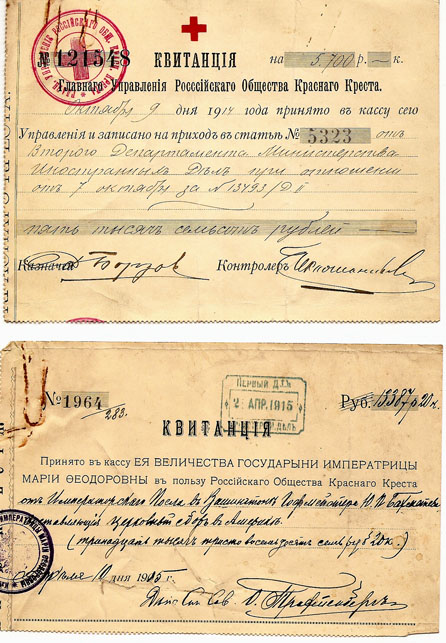 № 121548 КВИТАНЦІЯ на 5,700 р. — к.
Главнаго Управленія Росссійскаго Общества Краснаго Креста.
Октября 9 дня 1914 года принято въ кассу сего
Управленія и записано на приходъ въ статьѣ № 5323 отъ
Второго Департамента Министерства
Иностранныхъ Дѣлъ при отношеніи
отъ 7 октября за № 13493/D II
пять тысячъ семьсотъ рублей
Казначей Контролеръ
№ 1964
/283.
ПЕРВЫЙ Д-ТЪ
2 АПР. 1915
Руб. 13387 р 20 к.
КВИТАНЦІЯ
Принято въ кассу ЕЯ ВЕЛИЧЕСТВА ГОСУДАРЫНИ ИМПЕРАТРИЦЫ
МАРІИ ѲЕОДОРОВНЫ въ пользу Россійскаго Общества Краснаго Креста
отъ Императорскаго Посла въ Вашингтонѣ Гофмейстера
церковный сборъ въ Америкѣ.
(тринадцать тысячъ триста восемьдесятъ семь руб 20 к.)
дня 1915 г.